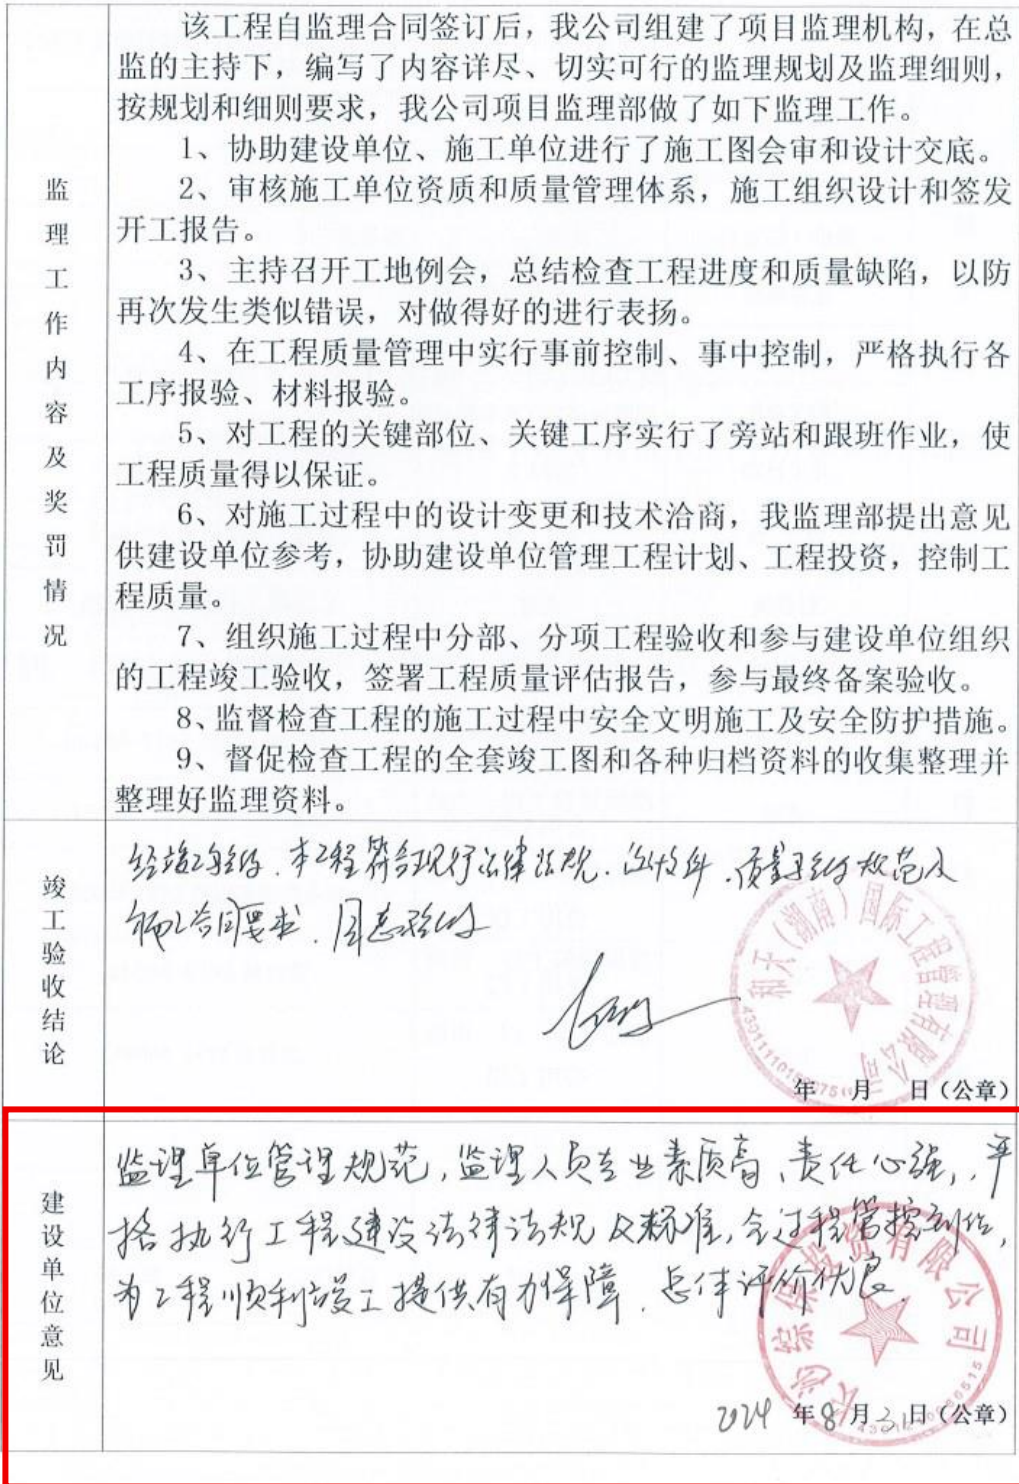 该工程自监理合同签订后，我公司组建了项目监理机构，在总
监的主持下，编写了内容详尽、切实可行的监理规划及监理细则，
按规划和细则要求，我公司项目监理部做了如下监理工作。
1、协助建设单位、施工单位进行了施工图会审和设计交底。
2、审核施工单位资质和质量管理体系，施工组织设计和签发
开工报告。
3、主持召开工地例会，总结检查工程进度和质量缺陷，以防
再次发生类似错误，对做得好的进行表扬。
4、在工程质量管理中实行事前控制、事中控制，严格执行各
工序报验、材料报验。
5、对工程的关键部位、关键工序实行了旁站和跟班作业，使
工程质量得以保证。
6、对施工过程中的设计变更和技术洽商，我监理部提出意见
供建设单位参考，协助建设单位管理工程计划、工程投资，控制工
程质量。
7、组织施工过程中分部、分项工程验收和参与建设单位组织
的工程竣工验收，签署工程质量评估报告，参与最终备案验收。
8、监督检查工程的施工过程中安全文明施工及安全防护措施。
9、督促检查工程的全套竣工图和各种归档资料的收集整理并
整理好监理资料。
监理工作内容及奖罚情况
竣工验收结论
经竣工验收，本工程符合现行法律法规、设计文件、质量验收规范及
施工合同要求，同意验收
和天（湖南）国际工程管理有限公司
年 月 日（公章）
建设单位意见
监理单位管理规范，监理人员专业素质高、责任心强，严
格执行工程建设法律法规及标准，全过程管控到位，
为工程顺利竣工提供有力保障，总体评价优良.
综保投资有限公司
2024 年8月31日（公章）